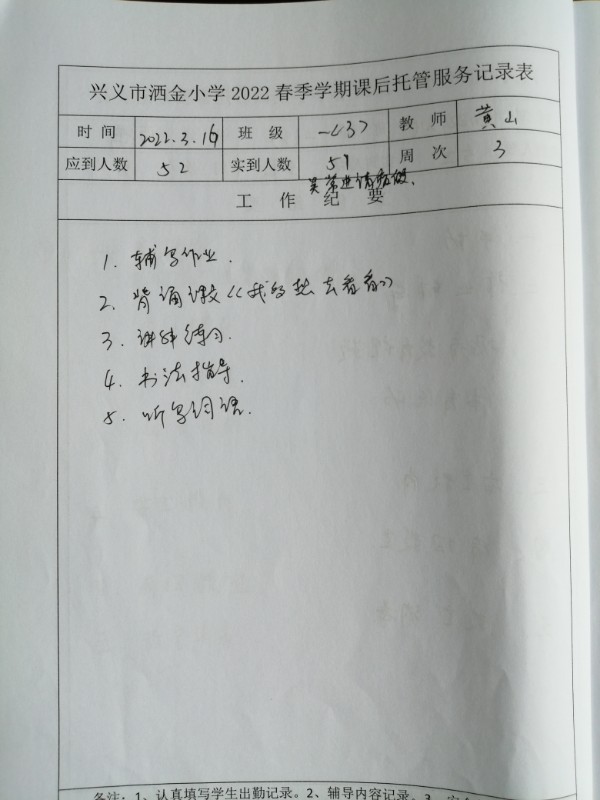 兴义市洒金小学2022春季学期课后托管服务记录表
时间 2022.3.16 班级 一<3> 教师 黄山
应到人数 52 实到人数 51 周次 3
请病假.
工作纪要
1. 辅写作业.
2. 背诵课文《我多想去看看》
3. 讲解练习.
4. 书法指导.
5. 听写词语.
备注：1、认真填写学生出勤记录。2、辅导内容记录。3、